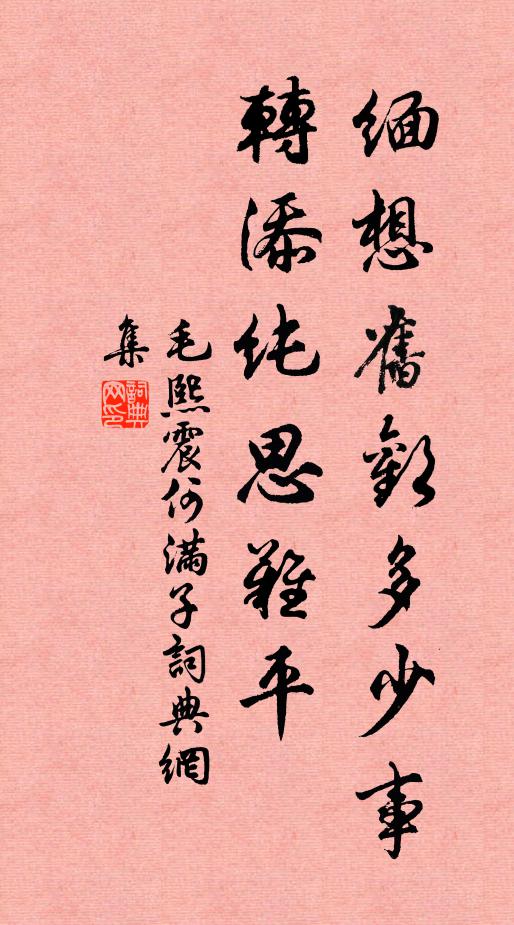 緬想舊歡多少事
轉添純思難平
毛熙震何滿子詞典網
集
詞典
网印